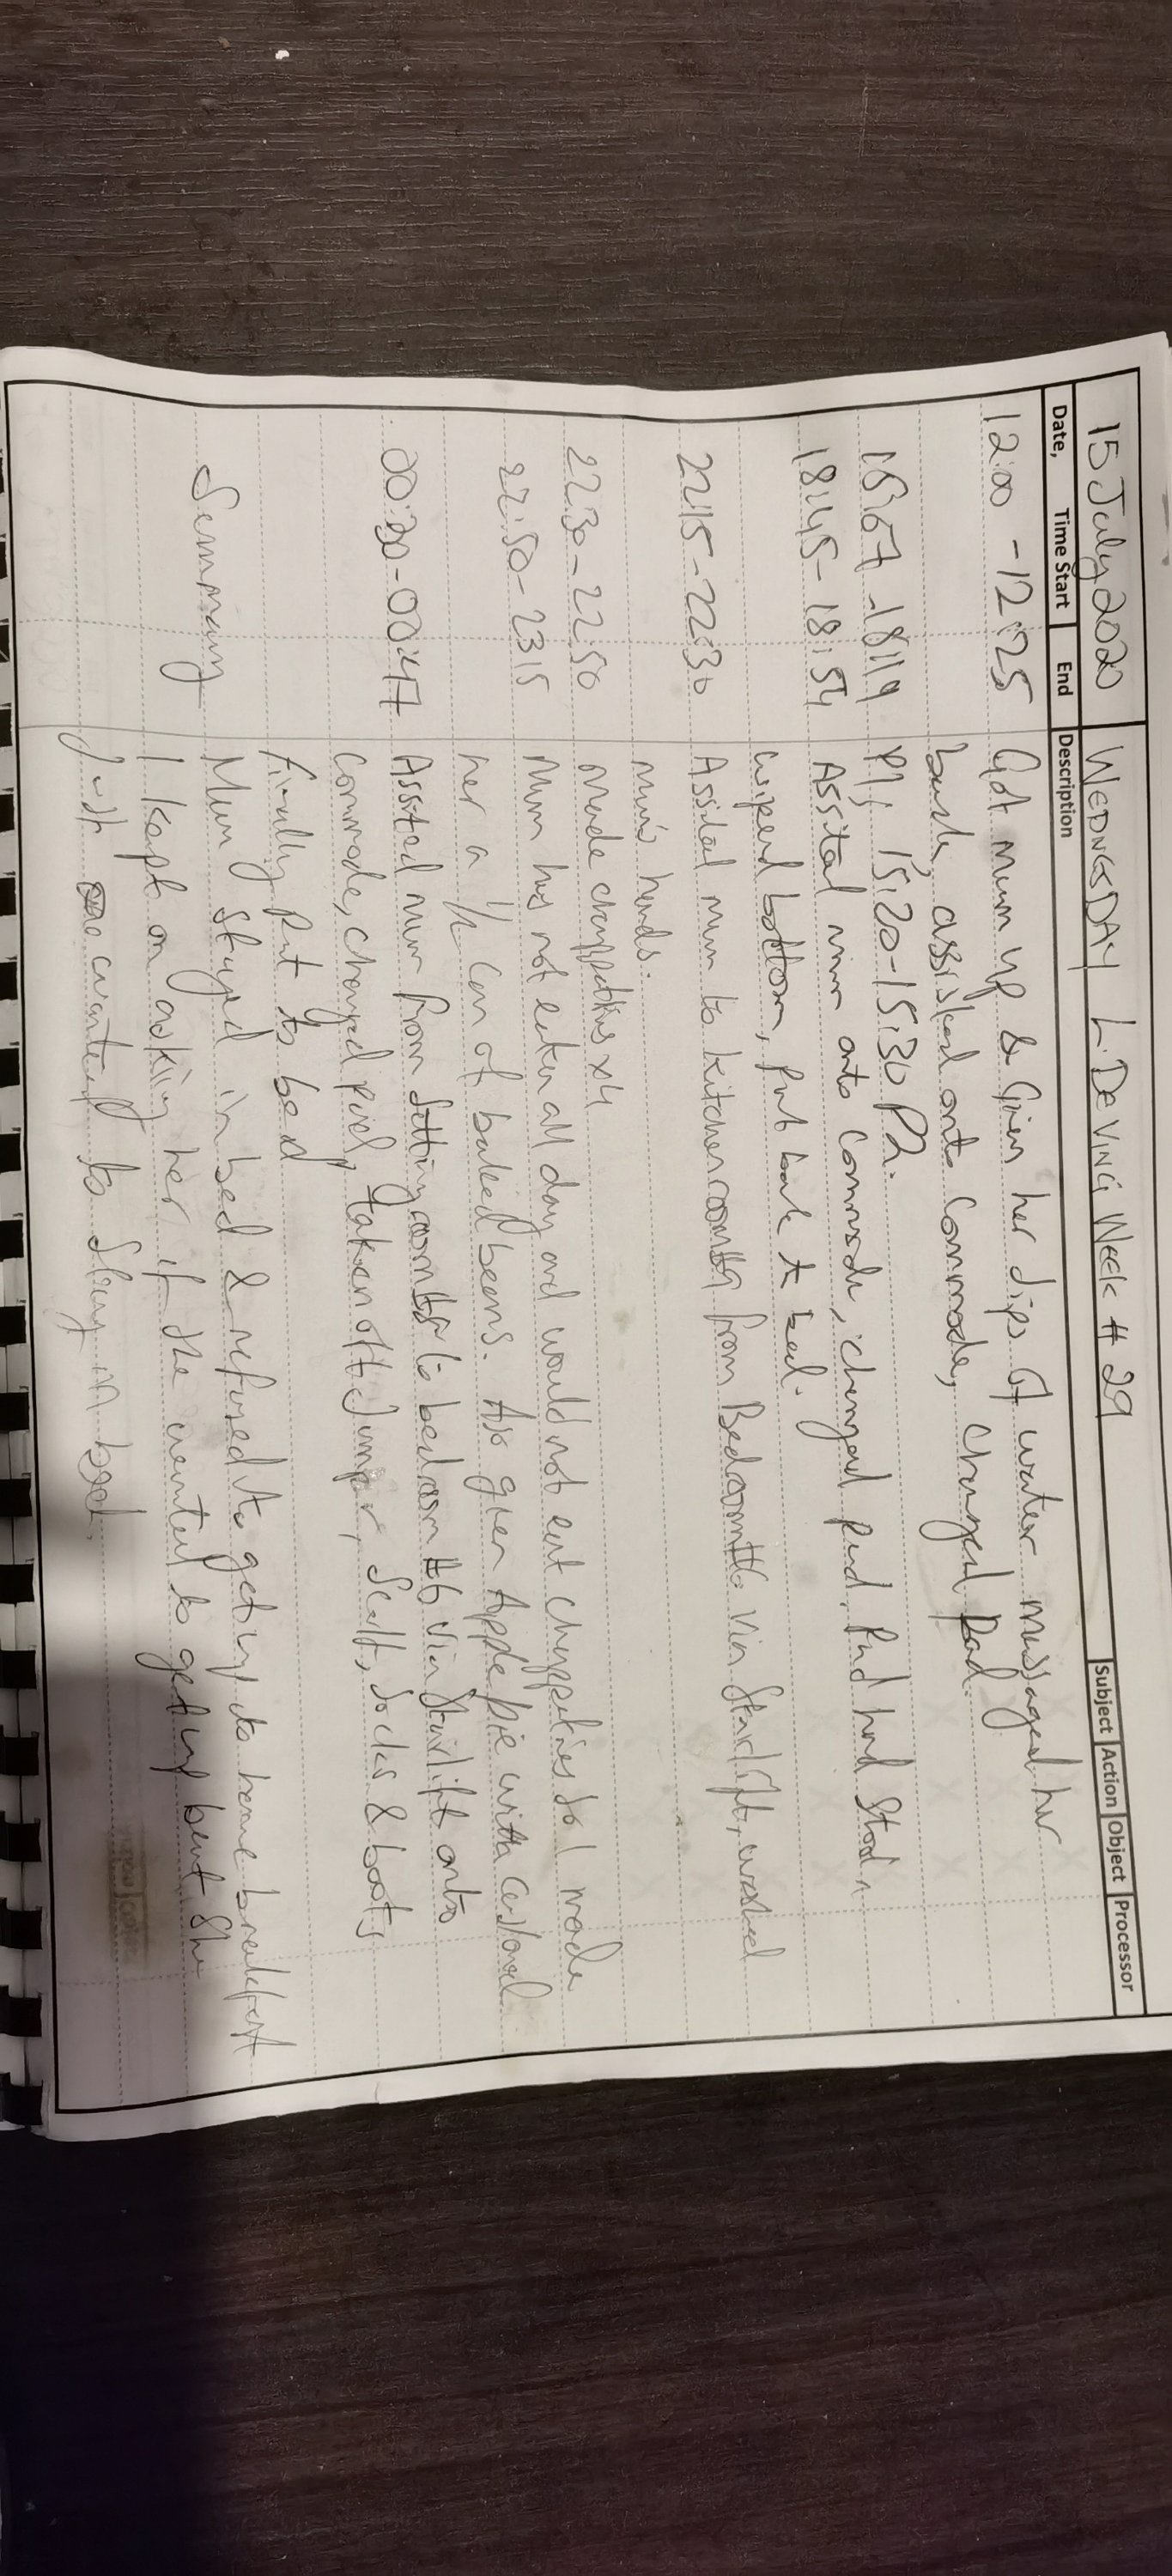 15 July 2020 WEDNESDAY L. DE VINCI WEEK # 29
Date, Time Start End Description Subject Action Object Processor
12:00 - 12:25 Got mum up & given her sips of water massaged her
back, assisted onto commode, changed pad.
18:19 15:20-15:30 Ph.
18:45-18:54 Assited mum onto commode, changed pad, Pad had stool,
wiped bottom, put back to bed.
22:15-22:30 Assited mum to kitchen from Bedroom#6 via Stairlift, washed
mum's hands.
22:30-22:50 Made chappaties x4
22:50-2315 Mum has not eaten all day and would not eat chappaties so I made
her a 1/2 can of baked beans. Also given Apple Pie with custard
00:30-00:47 Assited mum from Sitting room to bedroom #6 via Stairlift onto
commode, changed pad, taken off Jumper, Scarf, Socks & boots
finally put to bed
Summary Mum stayed in bed & refused to get up to have breakfast
I kept on asking her if she wanted to get up but she
Just wanted to stay in bed.